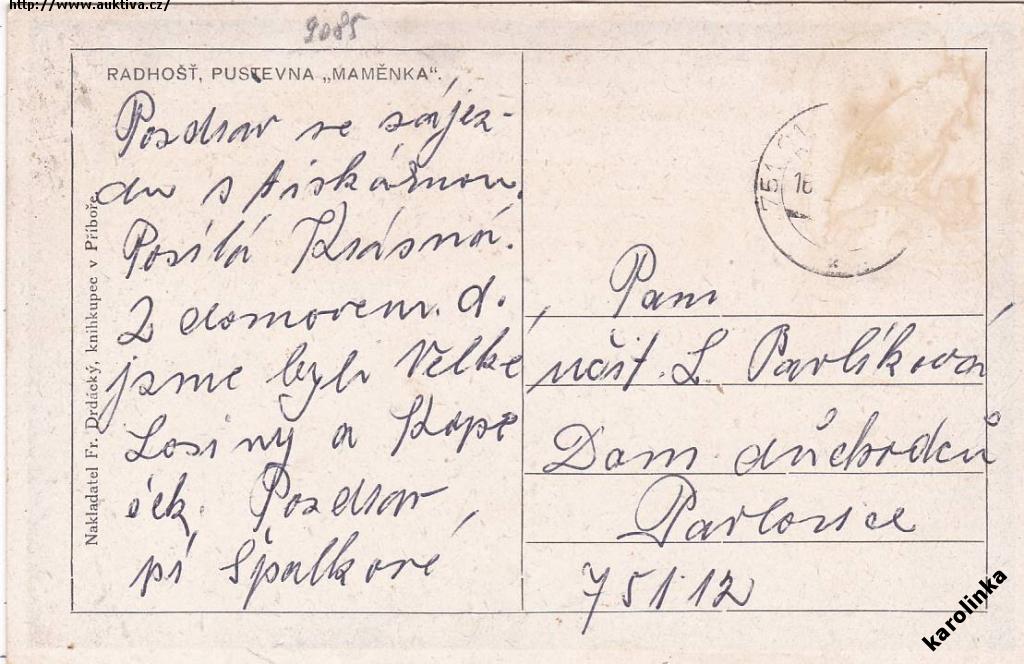 http://www.auktiva.cz/
9085
RADHOŠŤ, PUSTEVNA „MAMĚNKA“.
Pozdrav se zájez-
du s tiskárnou.
Posílá Krásná.
Z domovem. d.
jsme byli Velké
Losiny a Kope
ček. Pozdrav
pí Špalkové
Nakladatel Fr. Drdácký, knihkupec v Příboře.
751
16
Paní
učit. L. Pavlíková
Dom důchodců
Pavlovice
751 12
karolinka